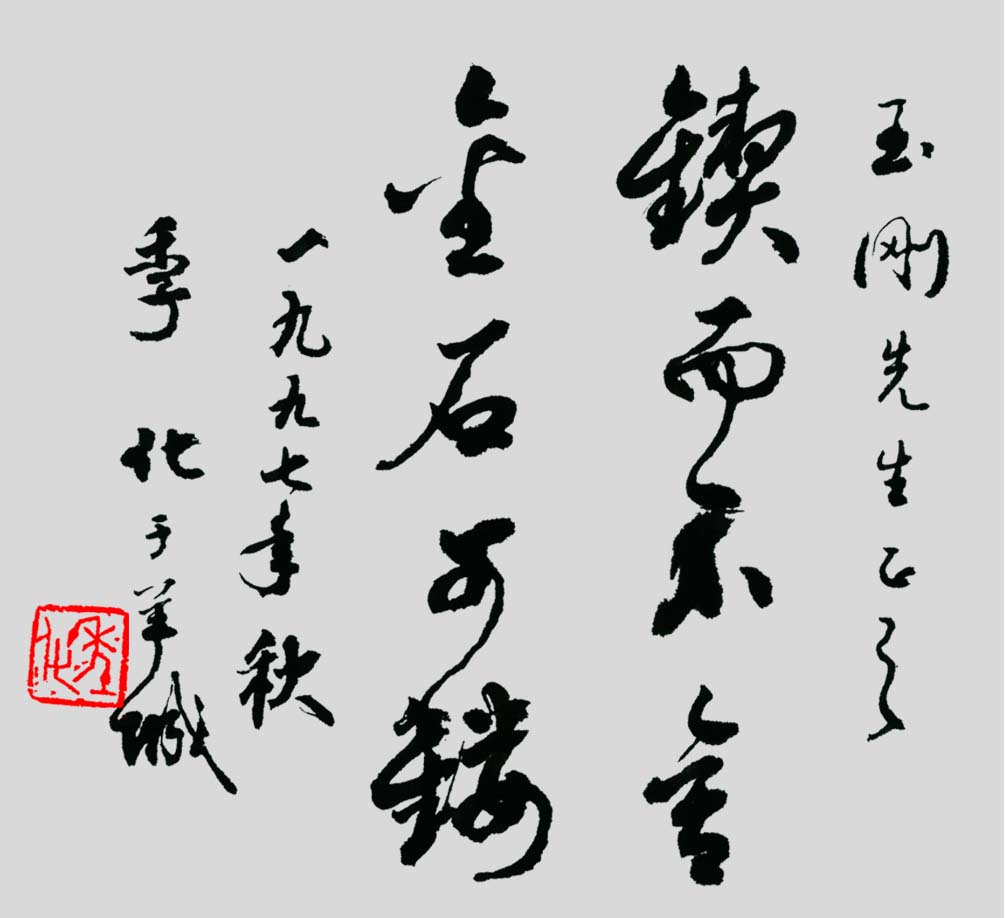 玉刚先生正之
鍥而不舍
金石可鏤
一九九七年秋
季化于羊城